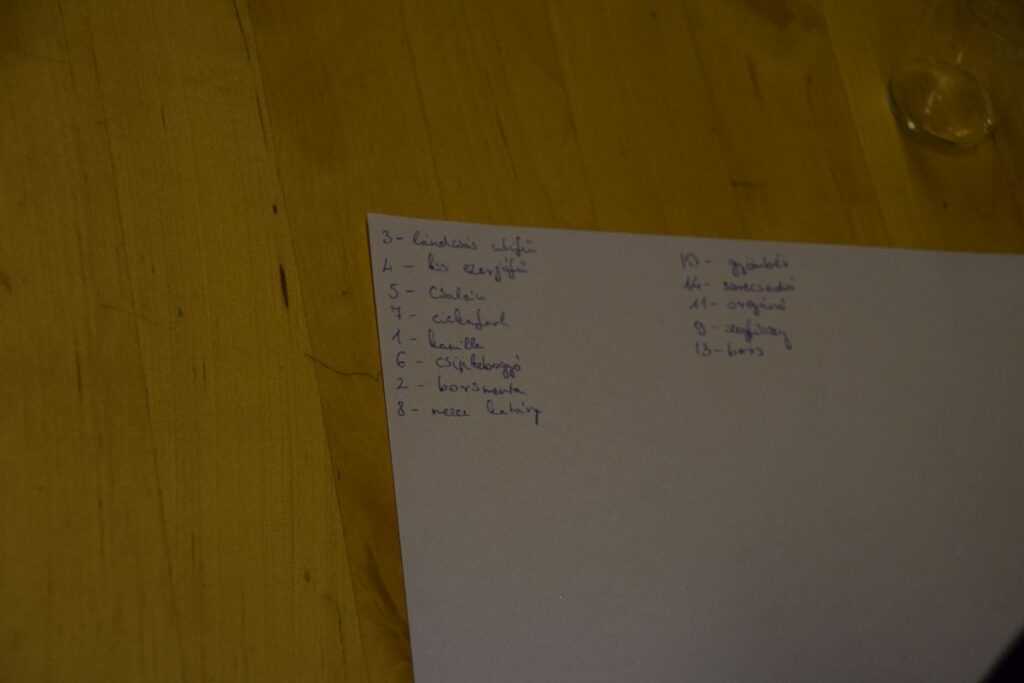 3- lándzsás útifű
4 - kis ezerjófű
5 - csalán
7 - cickafark
1 - kamilla
6 - csipkebogyó
2 - borsmenta
8 - mezei katáng
10 - gyömbér
14 -
11 - oregánó
9 - szegfűszeg
13 - bors